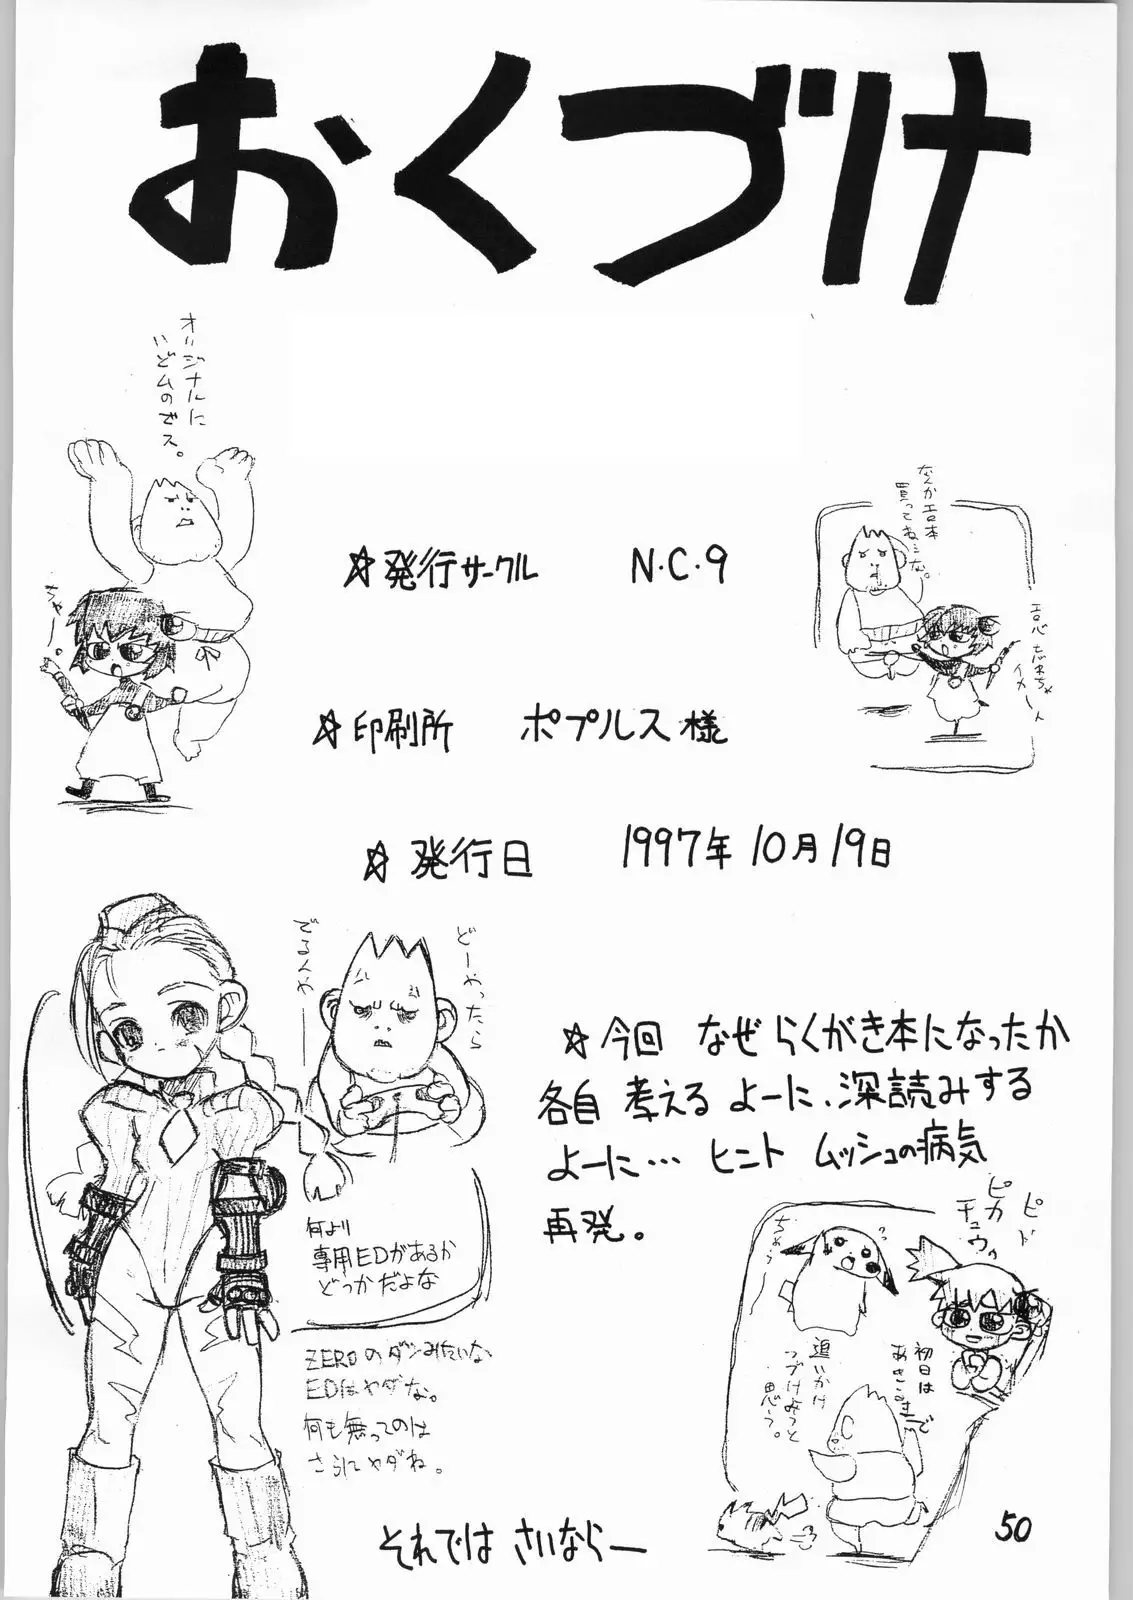 おくづけ
オリジナルに
いどムのでス。
ちゃー
☆発行サークル　N・C・9
なんか エロ本
買ってねェな。
エロ心 忘れちゃ
イカーん
☆印刷所　ポプルス様
☆発行日　1997年10月19日
どーやったら
でるんや
何より
専用EDがあるか
どっかだよな
ZEROのダンみたいな
EDはヤダな。
何も無ってのは
さらにヤダね。
☆今回 なぜ らくがき本になったか
各自 考えるよーに、深読みする
よーに… ヒニト ムッシュの病気
再発。
ピカ
チュウゥ
初日は
追いかけ
つづけようと
思う。
それでは さいならー
50